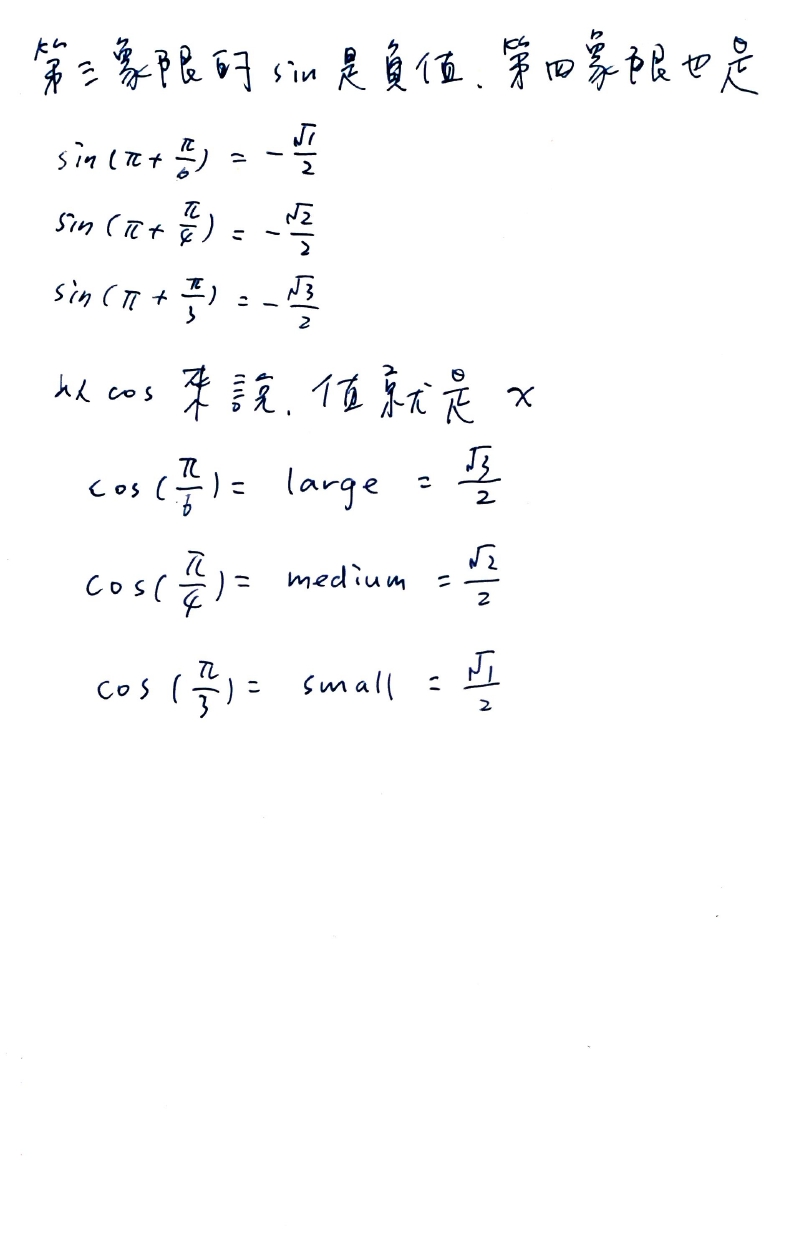 第三象限的 sin 是負值、第四象限也是
sin(π + π/6) = -√1/2
sin(π + π/4) = -√2/2
sin(π + π/3) = -√3/2
以 cos 來說、值就是 x
cos(π/6) = large = √3/2
cos(π/4) = medium = √2/2
cos(π/3) = small = √1/2